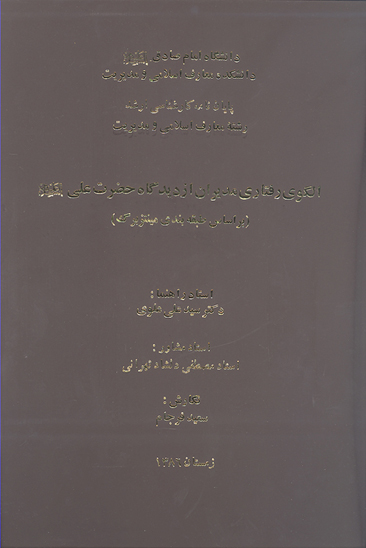 دانشگاه امام صادق
دانشکده معارف اسلامی و مدیریت
پایان نامه کارشناسی ارشد
رشته معارف اسلامی و مدیریت
الگوی رفتاری مدیران از دیدگاه حضرت علی
(بر اساس طبقه بندی مینتزبرگ)
استاد راهنما:
دکتر سید علی علوی
استاد مشاور:
استاد مصطفی دلشاد تهرانی
نگارش:
سعید فرجام
زمستان ۱۳۸۶